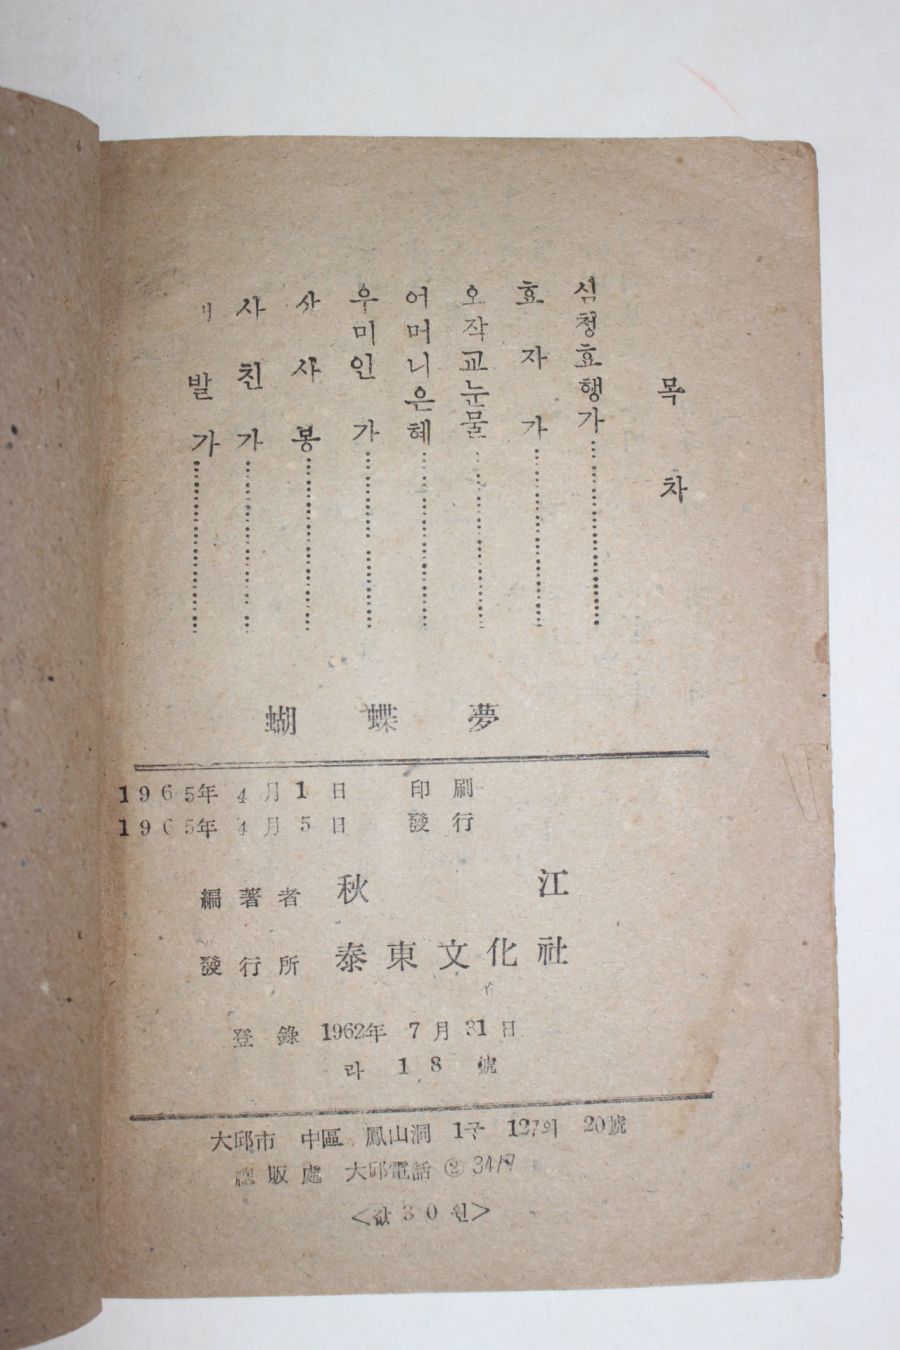 목차
심청효행가
효자가
오작교눈물
어머니은혜
우미인가
사사봉
사친가
발가
蝴蝶夢
1965年 4月 1日 印刷
1965年 4月 5日 發行
編著者 秋江
發行所 泰東文化社
登錄 1962年 7月 31日
라 18 號
大邱市 中區 鳳山洞 1구 127의 20號
總販處 大邱電話 ② 3417
<값 30원>